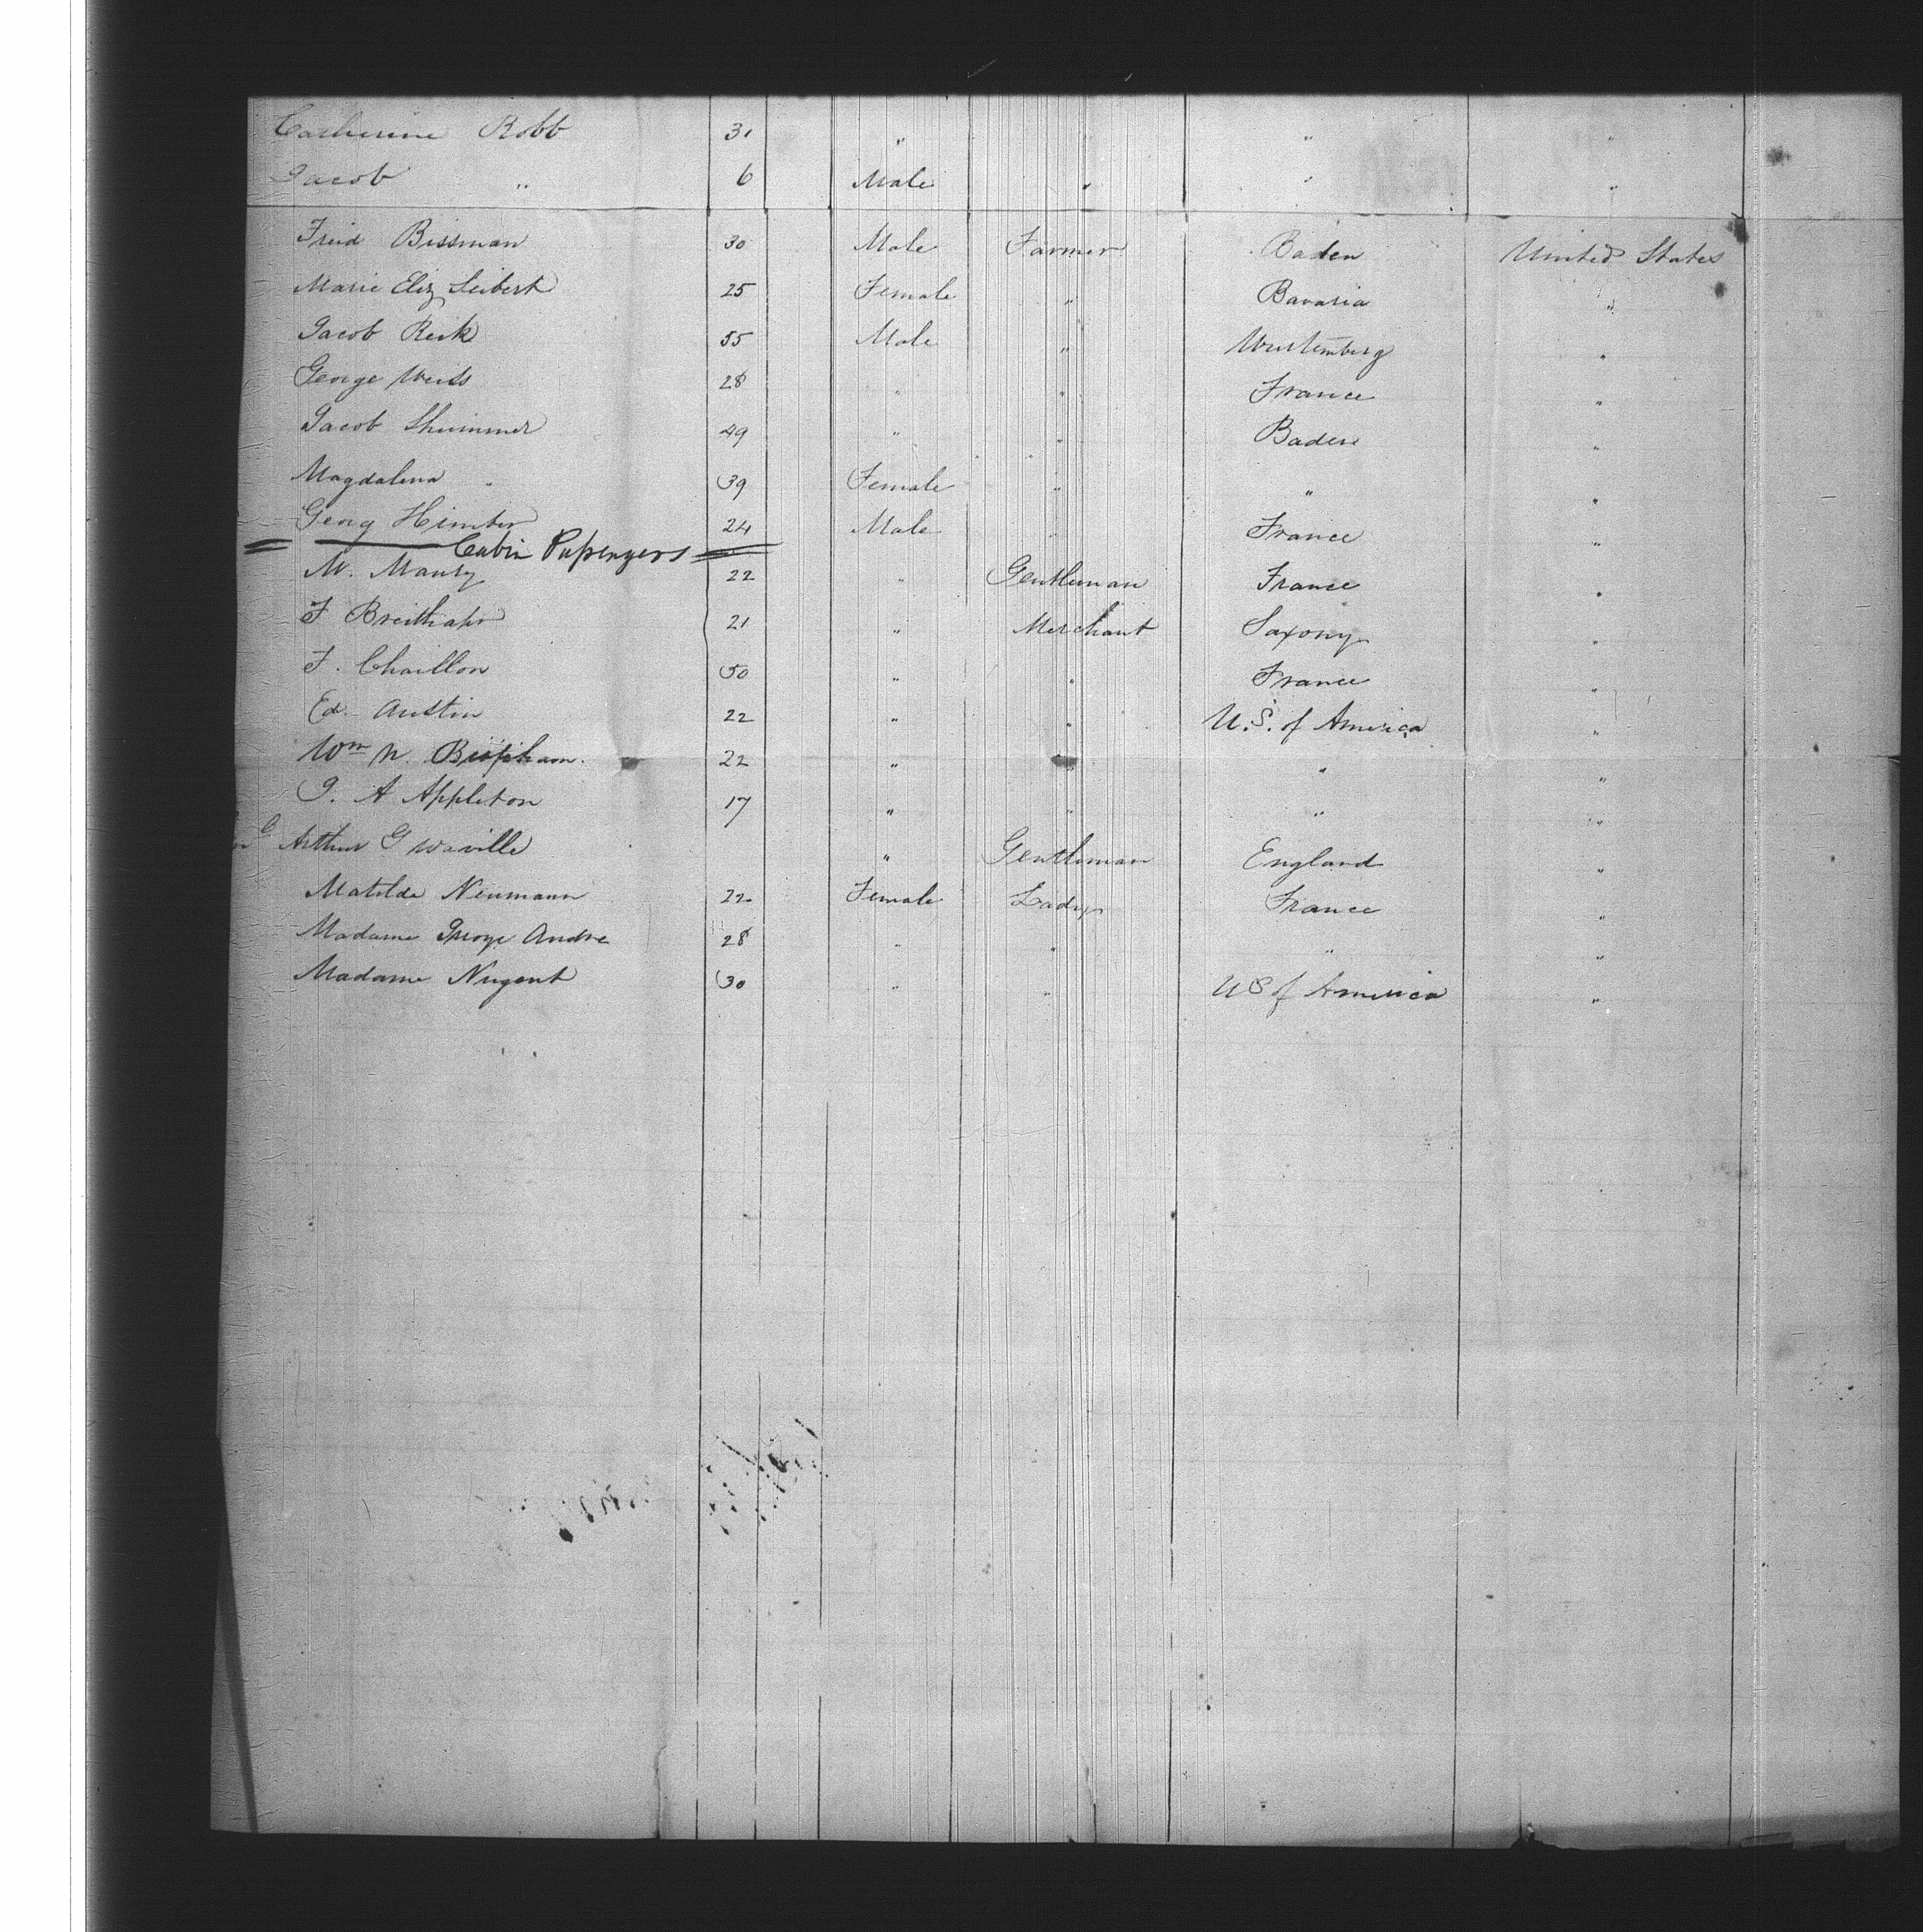 Catherine Robb 31 " " "
Jacob " 6 Male " " "
Freid Bissman 30 Male Farmer Baden United States
Marie Eliz Seibert 25 Female " Bavaria "
Jacob Reik 55 Male " Wurtemberg "
George 28 " " France "
Jacob 49 " " Baden "
Magdalena " 39 Female " " "
Georg Himber 24 Male " France "
Cabin Passengers
M. Maury 22 " Gentleman France "
F 21 " Merchant Saxony "
F. Chaillon 50 " " France "
Ed. Austin 22 " " U.S. of America "
Wm N. Bispham. 22 " " " "
J. A Appleton 17 " " " "
Arthur " Gentleman England "
Matilda Neumann 22 Female Lady France "
Madame Andre 28 " " " "
Madame Nugent 30 " " U S of America "